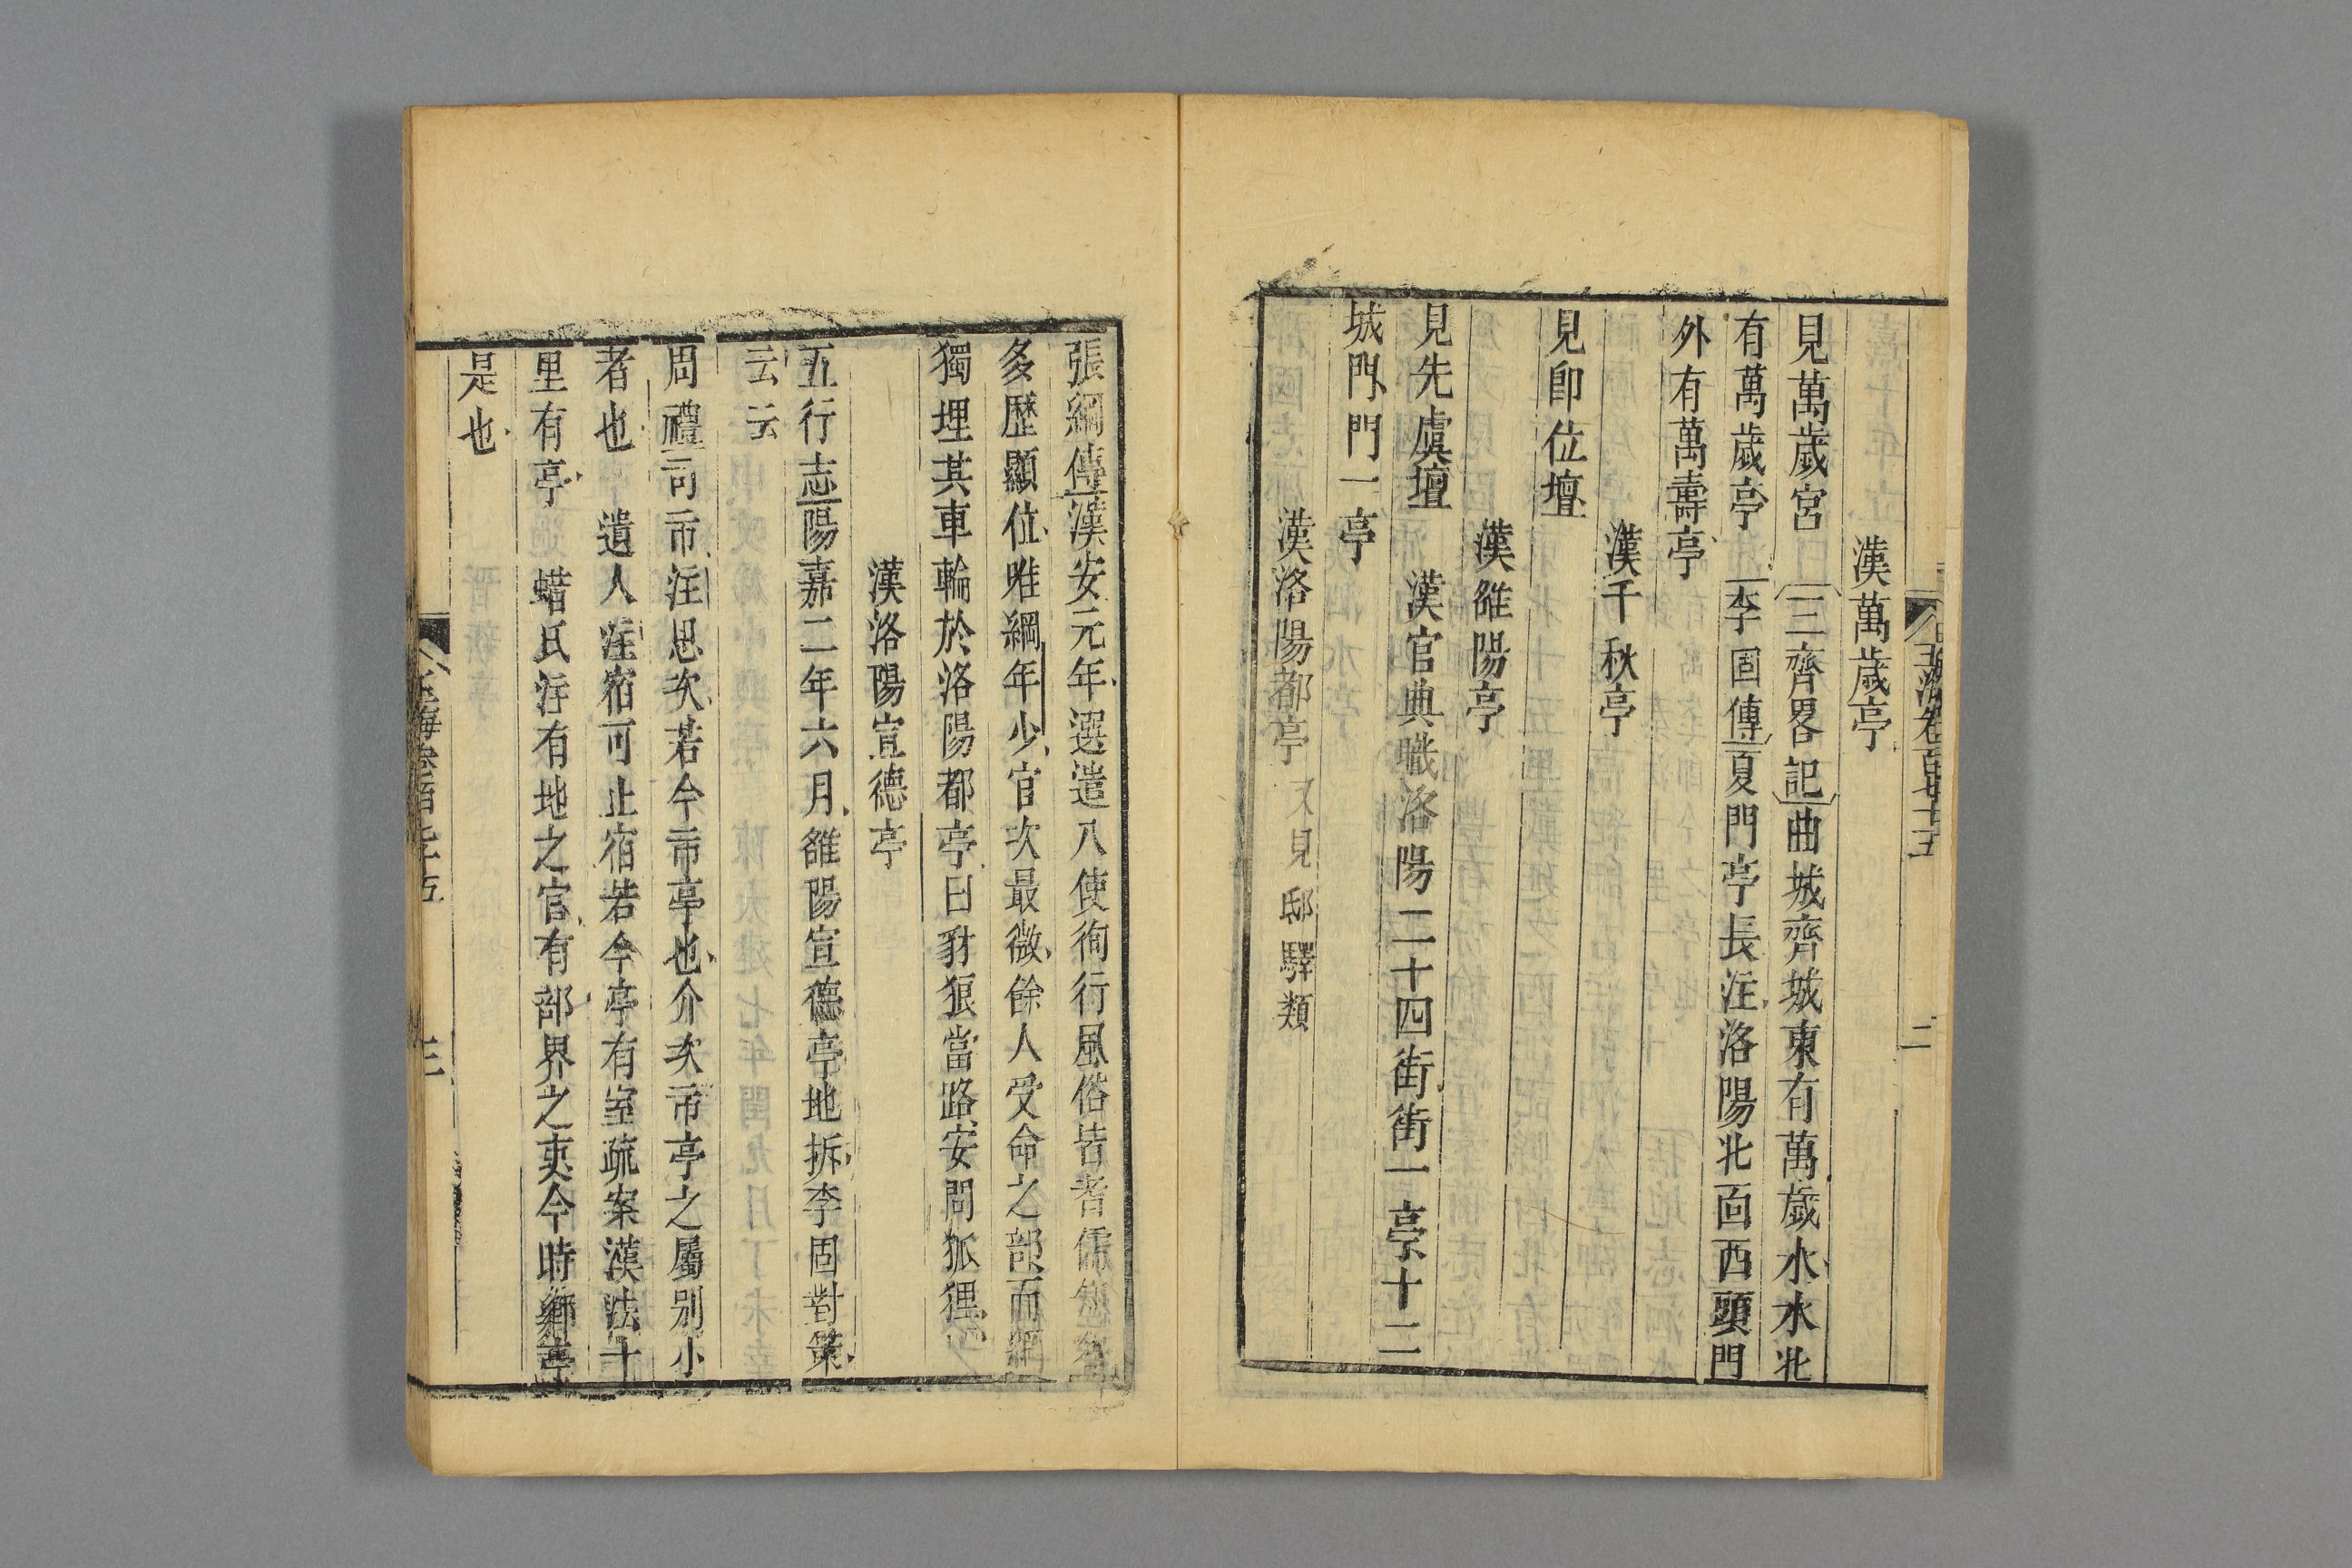 玉海卷百七十五 二
漢萬歲亭
見萬歲宮 三齊畧記曲城齊城東有萬歲水水北
有萬歲亭 李固傳夏門亭長注洛陽北面西頭門
外有萬壽亭
漢千秋亭
見卽位壇
漢雒陽亭
見先虞壇 漢官典職洛陽二十四街街一亭十二
城門門一亭
漢洛陽都亭 又見邸驛類
張綱傳漢安元年選遣八使徇行風俗皆耆儒
多歷顯位唯綱年少官次最微餘人受命之部而綱
獨埋其車輪於洛陽都亭曰豺狼當路安問狐狸
漢洛陽宣德亭
五行志陽嘉二年六月雒陽宣德亭地拆李固對策
云云
周禮司市注思次若今市亭也介次市亭之屬別小
者也 遺人注宿可止宿若今亭有室疏案漢法十
里有亭 蜡氏注有地之官有部界之吏今時鄉亭
是也
玉海卷百七十五 三